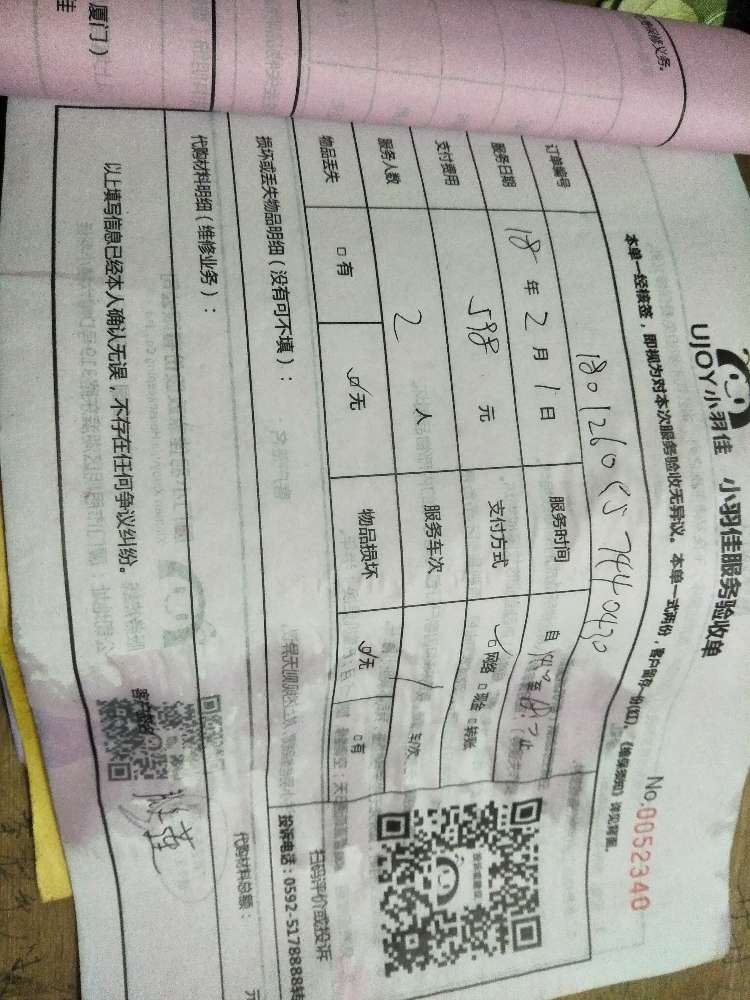 厦门）
佳
UJOY小羽佳 小羽佳服务验收单
No.0052340
本单一经核签，即视为对本次服务验收无异议。本单一式两份，客户留存一份(红)，《维保须知》详见背面。
订单编号
服务日期 18年2月1日 服务时间 自
支付费用 元 支付方式 网络 □现金 □转账
服务人数 2人 服务车次 / 车次
物品丢失 □有 无 物品损坏 无 □有
损坏或丢失物品明细（没有可不填）：
扫码评价或投诉
投诉电话：0592-5178888转
代购材料明细（维修业务）：
代购材料总额： 元
以上填写信息已经本人确认无误，不存在任何争议纠纷。